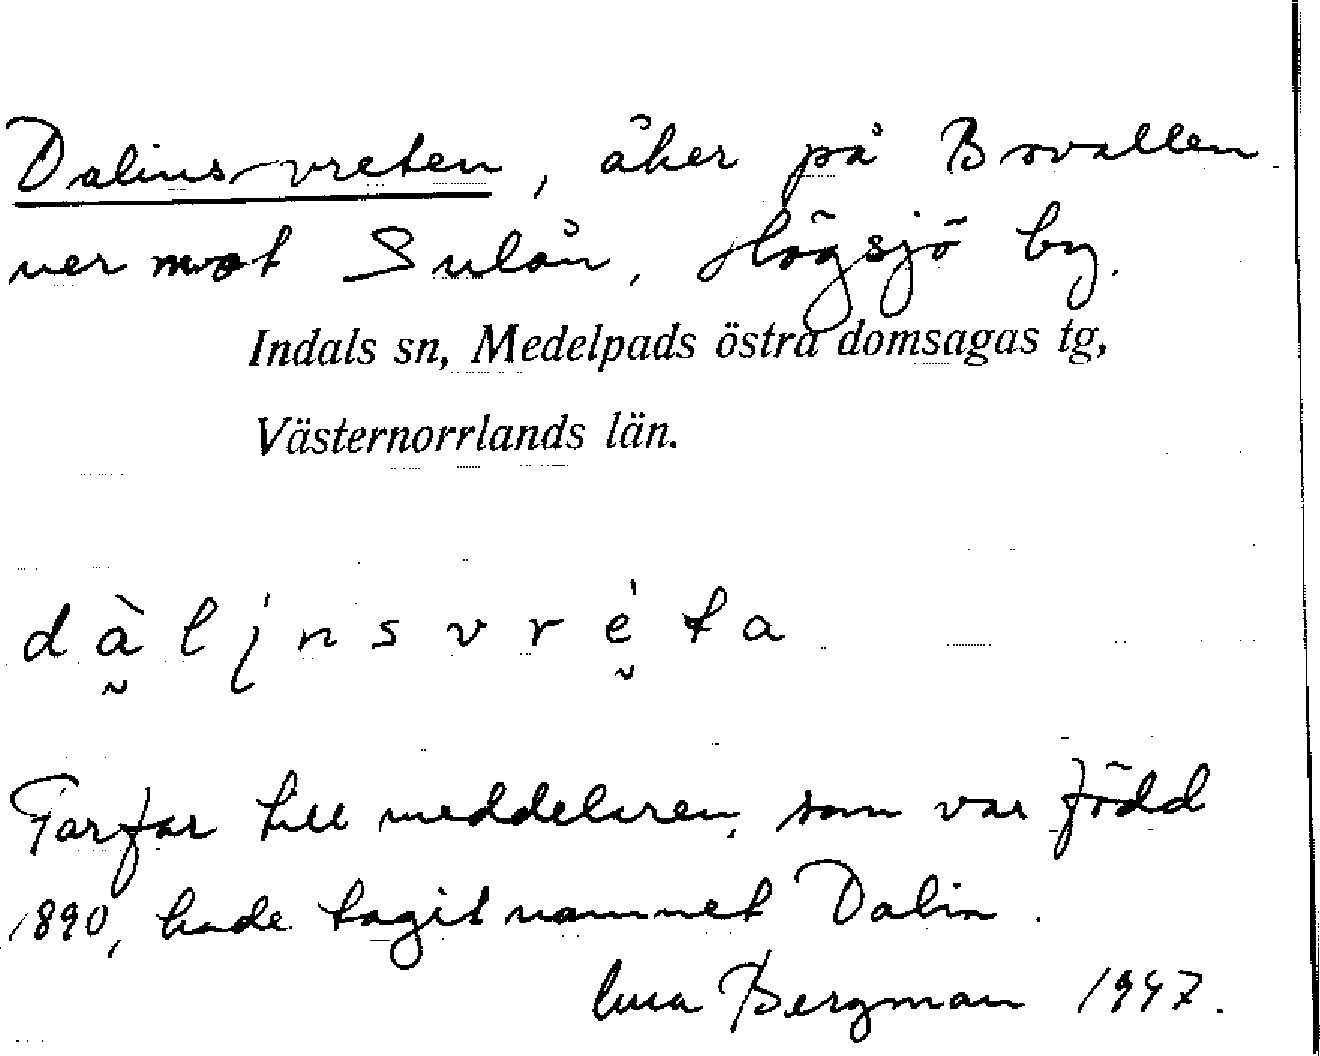 Dalinsvreten, åker på Bovallen
ner mot Sulån, Högsjö by.
Indals sn, Medelpads östra domsagas tg,
Västernorrlands län.
dàlịnsvréta
Farfar till meddelaren, som var född
1890, hade tagit namnet Dalin.
Bergman 1947.